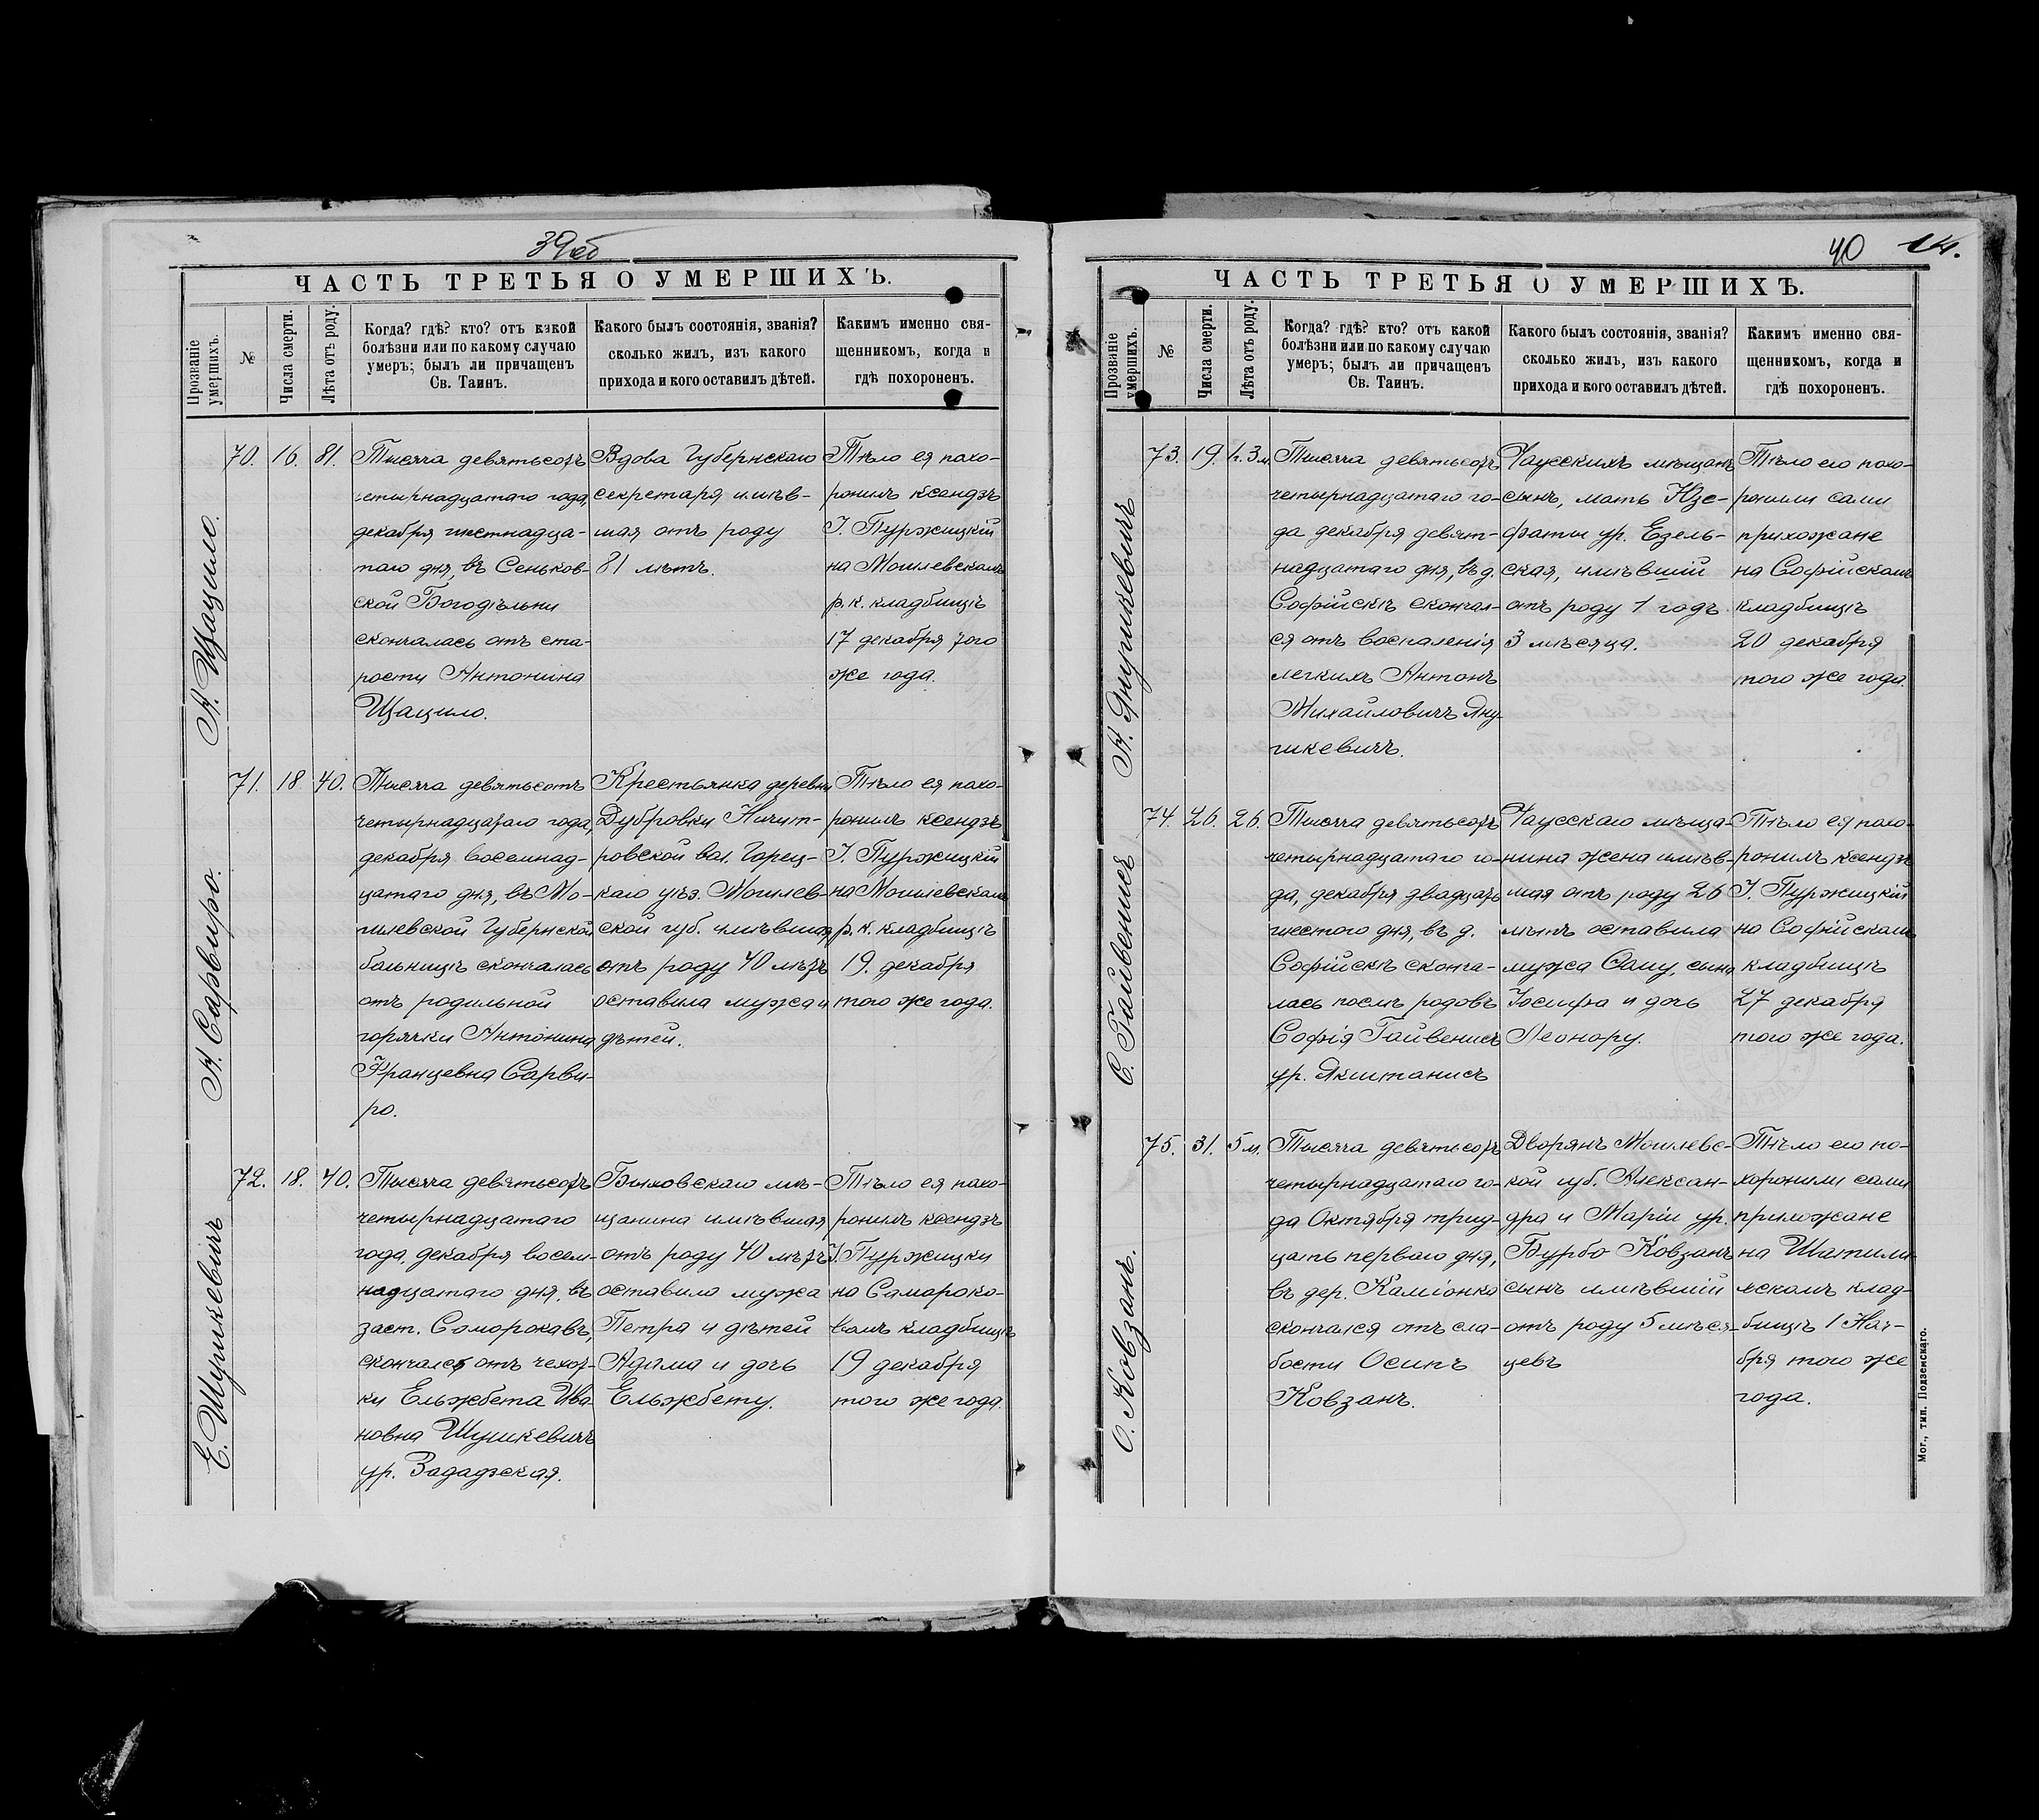 39об
ЧАСТЬ ТРЕТЬЯ О УМЕРШИХЪ.
Прозваніе умершихъ.
№
Числа смерти.
Лѣта отъ роду.
Когда? гдѣ? кто? отъ какой
болѣзни или по какому случаю
умеръ; былъ ли причащенъ
Св. Таинъ.
Какого былъ состоянія, званія?
сколько жилъ, изъ какого
прихода и кого оставилъ дѣтей.
Какимъ именно свя-
щенникомъ, когда и
гдѣ похороненъ.
А. Щацило.
70.
16.
81.
Тысяча девятьсотъ
четырнадцатаго года,
декабря шестнадца-
таго дня, въ Сеньков-
ской Богодѣльни
скончалась отъ ста-
рости Антонина
Щацило.
Вдова Губернскаго
секретаря имѣв-
шая отъ роду
81 лѣтъ.
Тѣло ея похо-
ронилъ ксендзъ
І. Пуржицкій
на Могилевскомъ
р. к. кладбищѣ
17 декабря того
же года.
А. Сарвиро.
71.
18
40.
Тысяча девятьсотъ
четырнадцатаго года,
декабря восемнад-
цатаго дня, въ Мо-
гилевской Губернской
больницѣ скончалась
отъ родильной
горячки Антонина
Францевна Сарви-
ро.
Крестьянка деревни
Дубровки Ничип-
ровской вол. Горец-
каго уѣз. Могилев-
ской губ. имѣвшая
отъ роду 40 лѣтъ
оставила мужа и
дѣтей.
Тѣло ея похо-
ронилъ ксендзъ
І. Пуржицкій
на Могилевскомъ
р. к. кладбищѣ
19. декабря
того же года.
Е. Шушкевичъ
72.
18.
40.
Тысяча девятьсотъ
четырнадцатаго
года, декабря восем-
надцатаго дня, въ
заст. Саморокавъ,
скончалсь отъ чехот-
ки Ельжбета Ива-
новна Шушкевичъ
ур. Зададзская.
Быховскаго мѣ-
щанина имѣвшая
отъ роду 40 лѣтъ
оставила мужа
Петра и дѣтей
Адама и дочь
Ельжбету.
Тѣло ея похо-
ронилъ ксендзъ
І. Пуржицки
на Самороко-
вомъ кладбищѣ
19 декабря
того же года.
40
14.
ЧАСТЬ ТРЕТЬЯ О УМЕРШИХЪ.
Прозваніе умершихъ.
№
Числа смерти.
Лѣта отъ роду.
Когда? гдѣ? кто? отъ какой
болѣзни или по какому случаю
умеръ; былъ ли причащенъ
Св. Таинъ.
Какого былъ состоянія, званія?
сколько жилъ, изъ какого
прихода и кого оставилъ дѣтей.
Какимъ именно свя-
щенникомъ, когда и
гдѣ похороненъ.
А. Янушкевичъ
73.
19.
1г. 3м.
Тысяча девятьсотъ
четырнадцатаго го-
да декабря девят-
надцатаго дня, въ д.
Софійскѣ скончал-
ся отъ воспаленія
легкихъ Антонъ
Михайловичъ Яну-
шкевичъ.
Чаусскихъ мѣщанъ
сынъ, мать Юзе-
фаты ур. Езель-
ская, имѣвшій
отъ роду 1 годъ
3 мѣсяца.
Тѣло его похо-
ронили сами
прихожане
на Софійскомъ
кладбищѣ
20 декабря
того же года.
С. Гайвенисъ
74.
26.
26.
Тысяча девятьсотъ
четырнадцатаго го-
да, декабря двадцать
шестого дня, въ д.
Софійскѣ сконча-
лась послѣ родовъ
Софія Гайвенисъ
ур. Якштанисъ
Чаусскаго мѣща-
нина жена имѣв-
шая отъ роду 26
лѣтъ оставила
мужа Саму, сына
Іосифа и дочь
Леонору.
Тѣло ея похо-
ронилъ ксендзъ
І. Пуржицкій
на Софійскомъ
кладбищѣ
27 декабря
того же года.
О. Ковзанъ.
75.
31.
5м.
Тысяча девятьсотъ
четырнадцатаго го-
да Октября трид-
цать перваго дня,
въ дер. Каміонко
скончался отъ сла-
бости Осипъ
Ковзанъ.
Дворянъ Могилевс-
кой губ. Алексан-
дра и Маріи ур.
Бурбо Ковзанъ
сынъ имѣвшій
отъ роду 5 мѣся-
цевъ
Тѣло его по-
хоронили сами
прихожане
на Шатили-
нскомъ клад-
бищѣ 1 Ноя-
бря того же
года.
Мог., тип. Подземскаго.